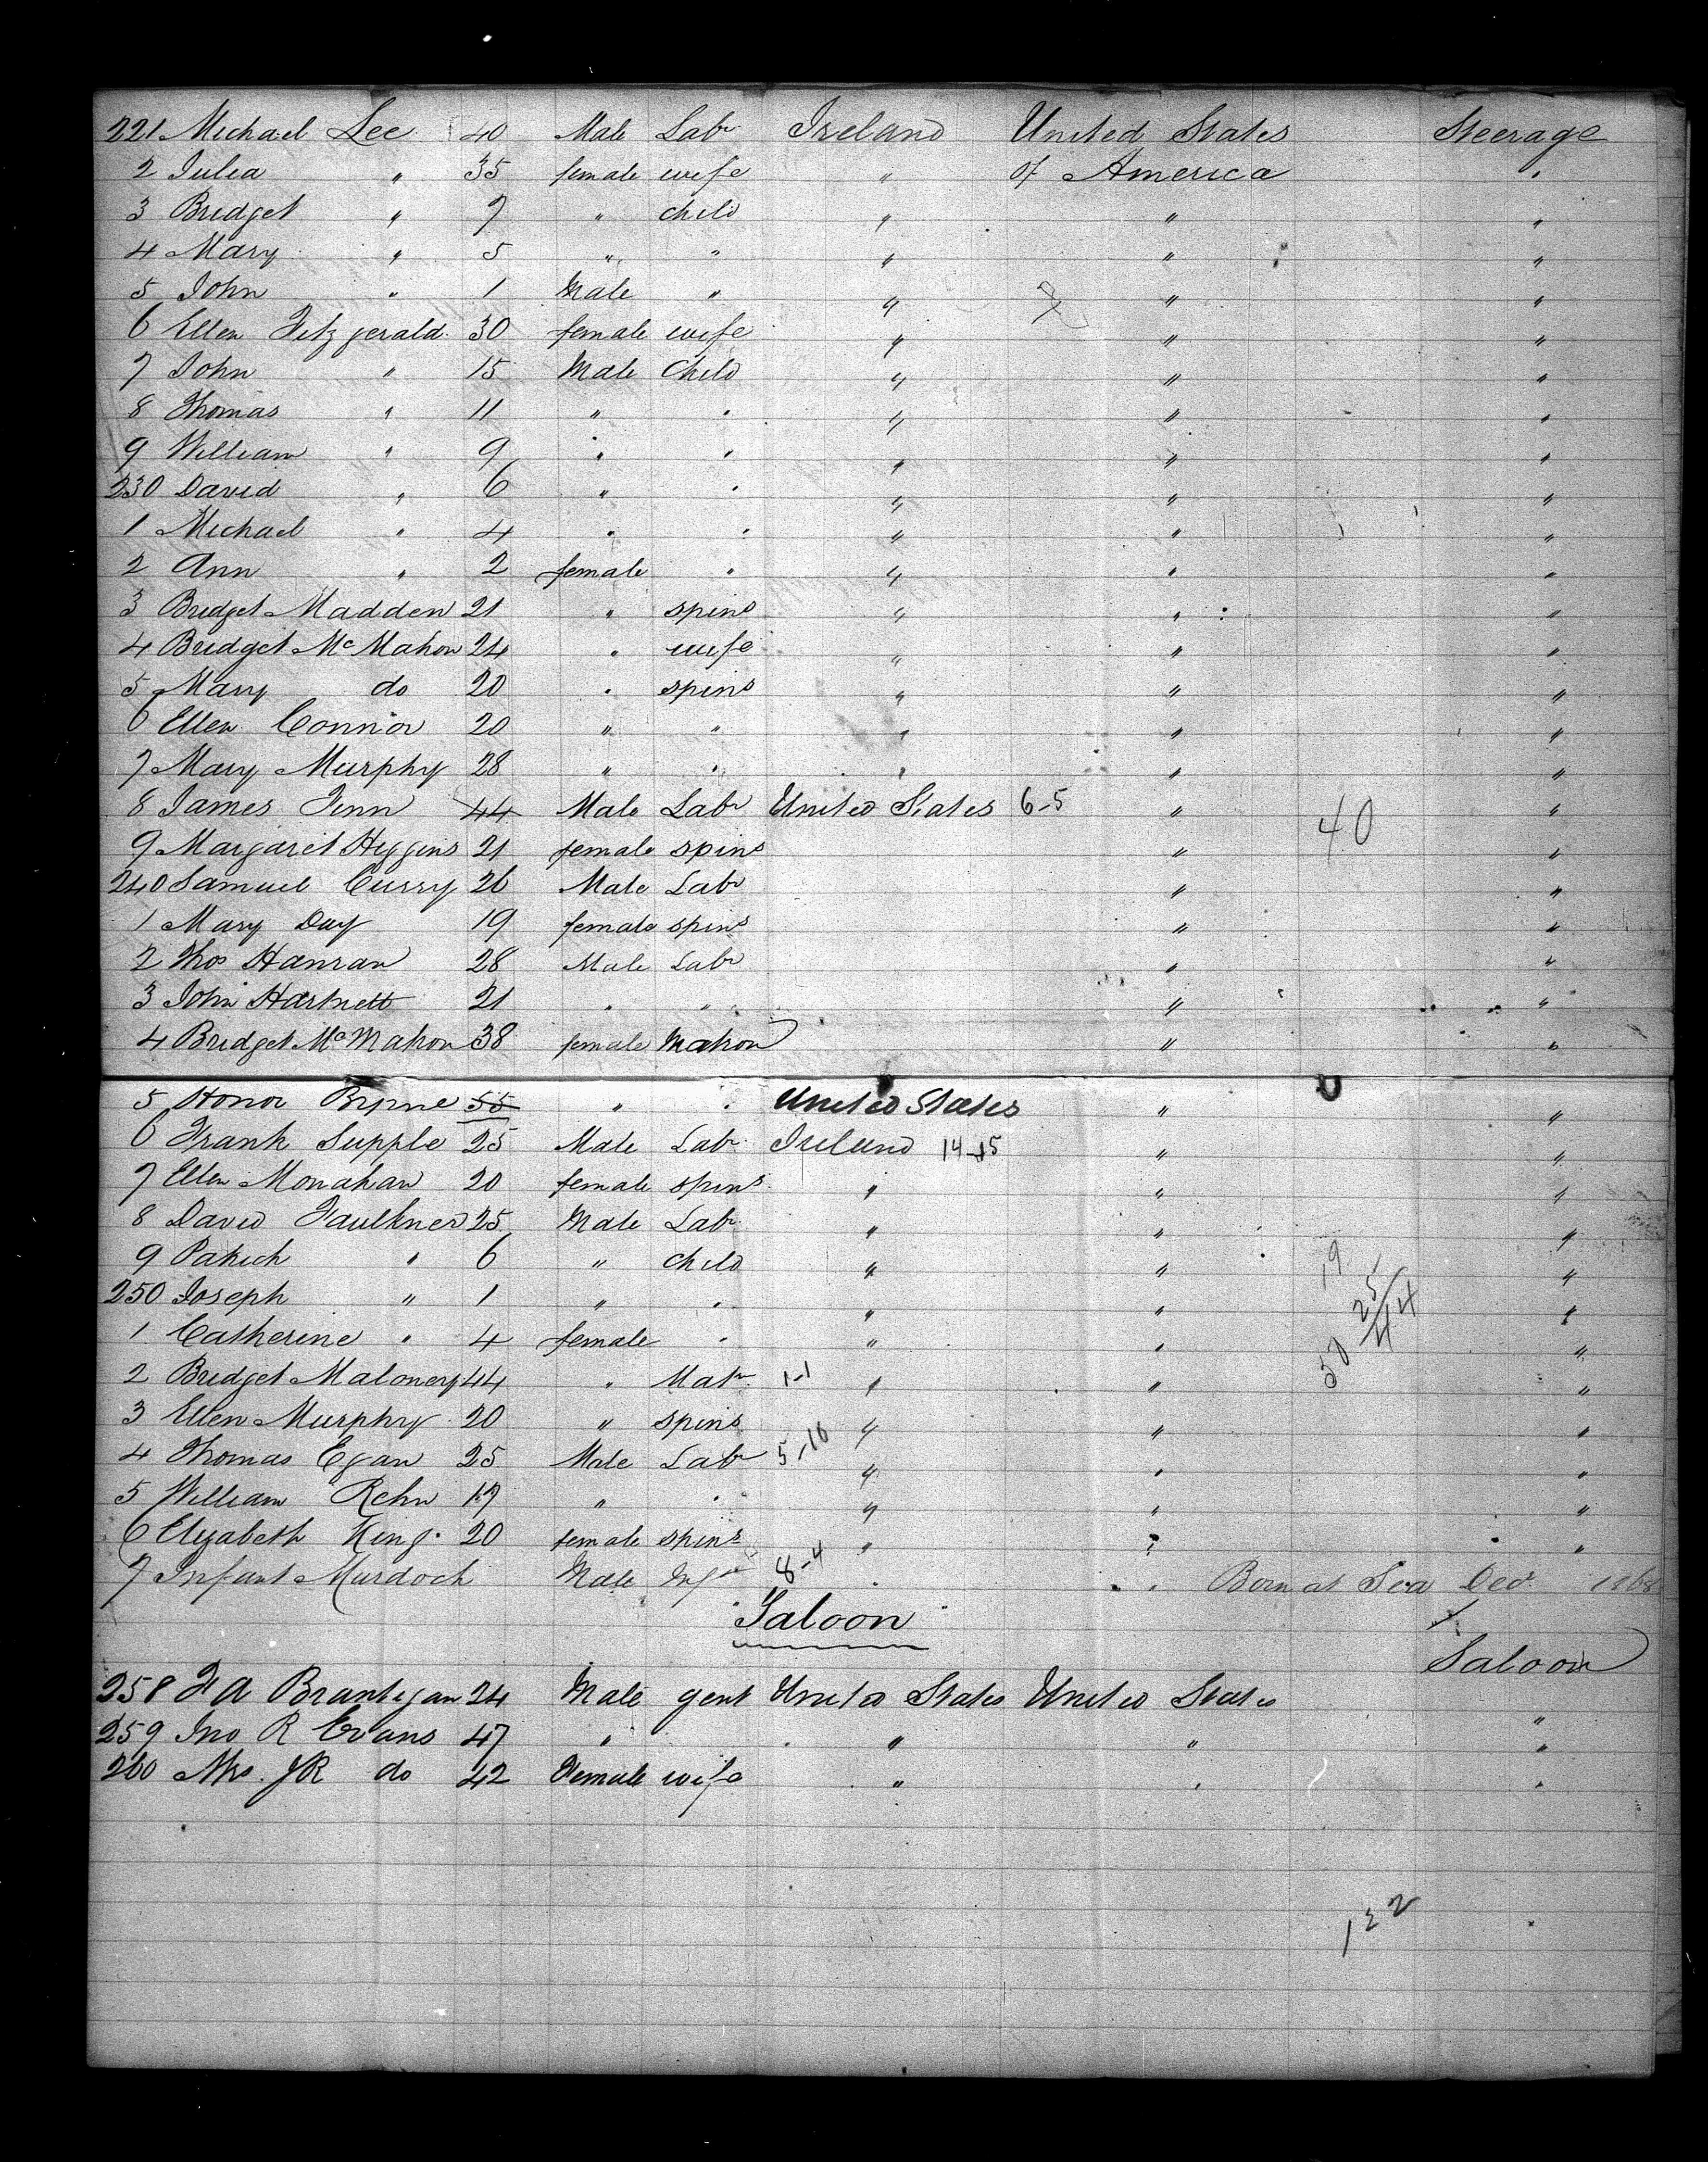 221 Michael Lee 40 Male Labr Ireland United States Steerage
2 Julia " 35 female wife " of America "
3 Bridget " 7 " child " " "
4 Mary " 5 " " " " "
5 John " 1 Male " " " "
6 Ellen Fitzgerald 30 female wife " " "
7 John " 15 Male Child " " "
8 Thomas " 11 " " " " "
9 William " 9 " " " " "
230 David " 6 " " " " "
1 Michael " 4 " " " " "
2 Ann " 2 female " " " "
3 Bridget Madden 21 " spins " " "
4 Bridget McMahon 24 " wife " " "
5 Mary do 20 " spins " " "
6 Ellen Connor 20 " " " " "
7 Mary Murphy 28 " " " " "
8 James Finn 44 Male Labr United States 6-5 " "
40
9 Margaret Higgins 21 female spins " "
240 Samuel Curry 26 Male Labr " "
1 Mary Day 19 female spins " "
2 Thos Hanran 28 Male Labr " "
3 John Hartnett 21 " " " "
4 Bridget McMahon 38 female Matron " "
5 Honor Byrne 55 " " United States " "
6 Frank Supple 25 Male Labr Ireland 14-15 " "
7 Ellen Monahan 20 female spins " " "
8 David Faulkner 25 Male Labr " " "
9 Patrick " 6 " child " " 19 "
250 Joseph " 1 " " " " 25 "
44
1 Catherine " 4 female " " " 50 "
2 Bridget Maloney 44 " Matr 1-1 " " "
3 Ellen Murphy 20 " spins " " "
4 Thomas Egan 25 Male Labr 5-10 " " "
5 William Rehn 17 " " " " "
6 Elizabeth King 20 female spins " " "
7 Infant Murdoch Male Inft 8-4 " " Born at Sea Decr 1868
Saloon
Saloon
258 F A Brantegan 24 Male gent United States United States "
259 Jno R Evans 47 " " " " "
260 Mrs. J R do 42 Female wife " " "
132